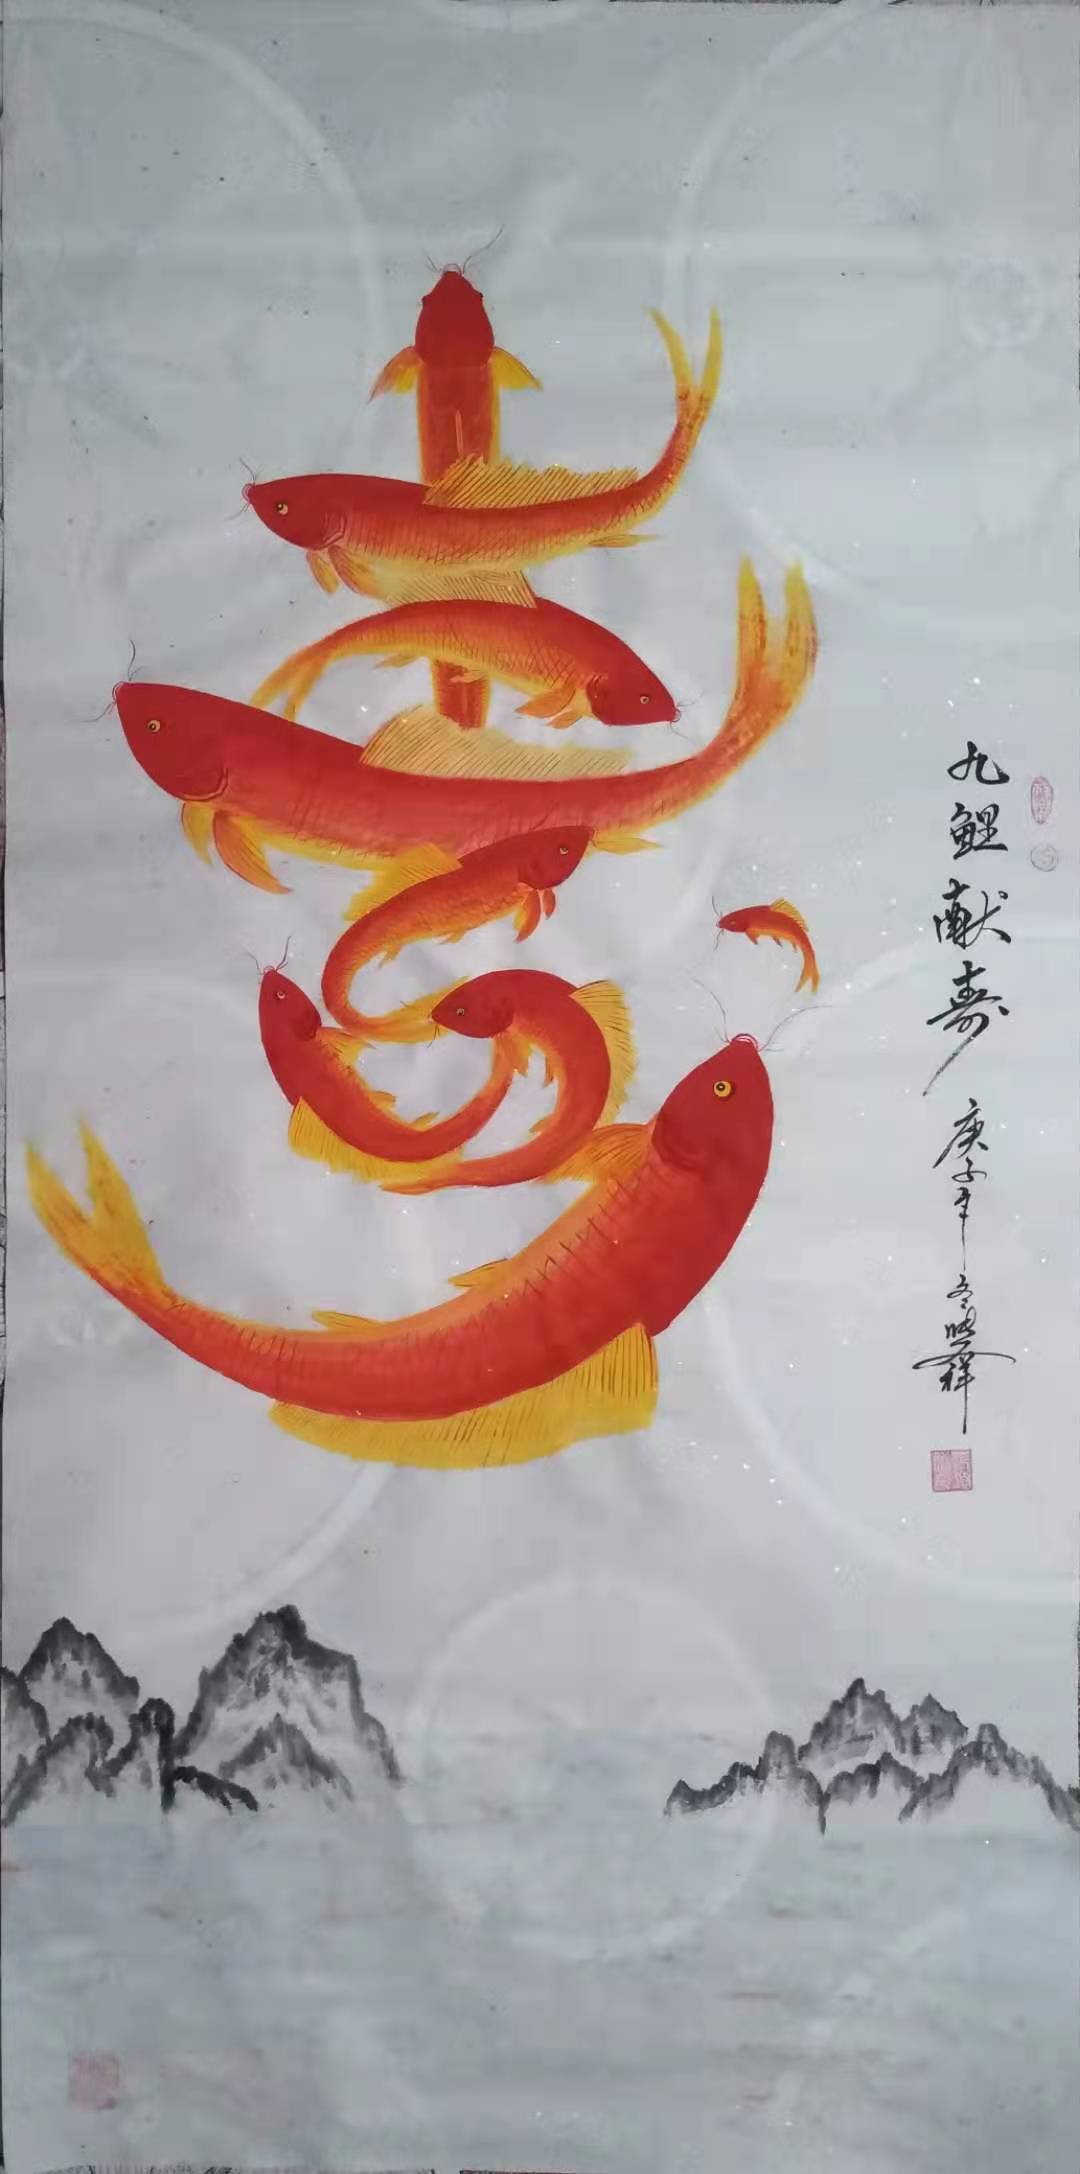 九鲤献寿
庚子年冬
祥